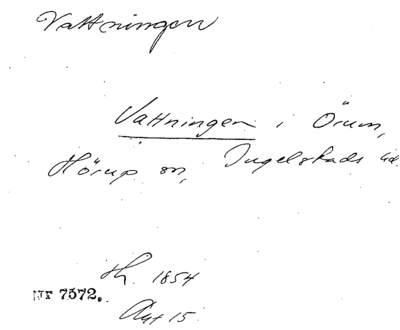 Vattningen
Vattningen i Örum,
Hörup sn, Ingelstads hd.
Lh. 1854
Nr 7572.
Akt 15